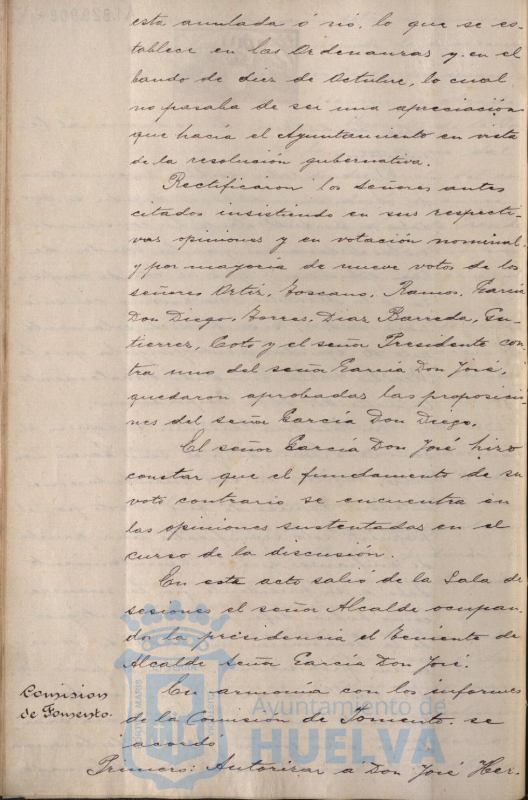 esta anulada ó nó, lo que se es-
tablece en las Ordenanzas y en el
bando de diez de Octubre, lo cual
no pasaba de ser una apreciación
que hacía el Ayuntamiento en vista
de la resolución gubernativa.
Rectificaron los señores antes
citados insistiendo en sus respecti-
vas opiniones y en votación nominal
y por mayoria de nueve votos de los
señores Ortiz, Toscano, Ramos, Garcia
Don Diego, Torres, Diaz Barreda, Gu-
tierrez, Coto y el señor Presidente con-
tra uno del señor Garcia Don José,
quedaron aprobadas las proposicio-
nes del señor García Don Diego.
El señor García Don José hizo
constar que el fundamento de su
voto contrario se encuentra en
las opiniones sustentadas en el
curso de la discusión.
En este acto salió de la Sala de
sesiones el señor Alcalde ocupan-
do la presidencia el Teniente de
Alcalde señor García Don José.
Comision
de Fomento.
En armonía con los informes
de la Comisión de Fomento se
acordó
Primero: Autorizar á Don José Her-
Ayuntamiento de
HUELVA